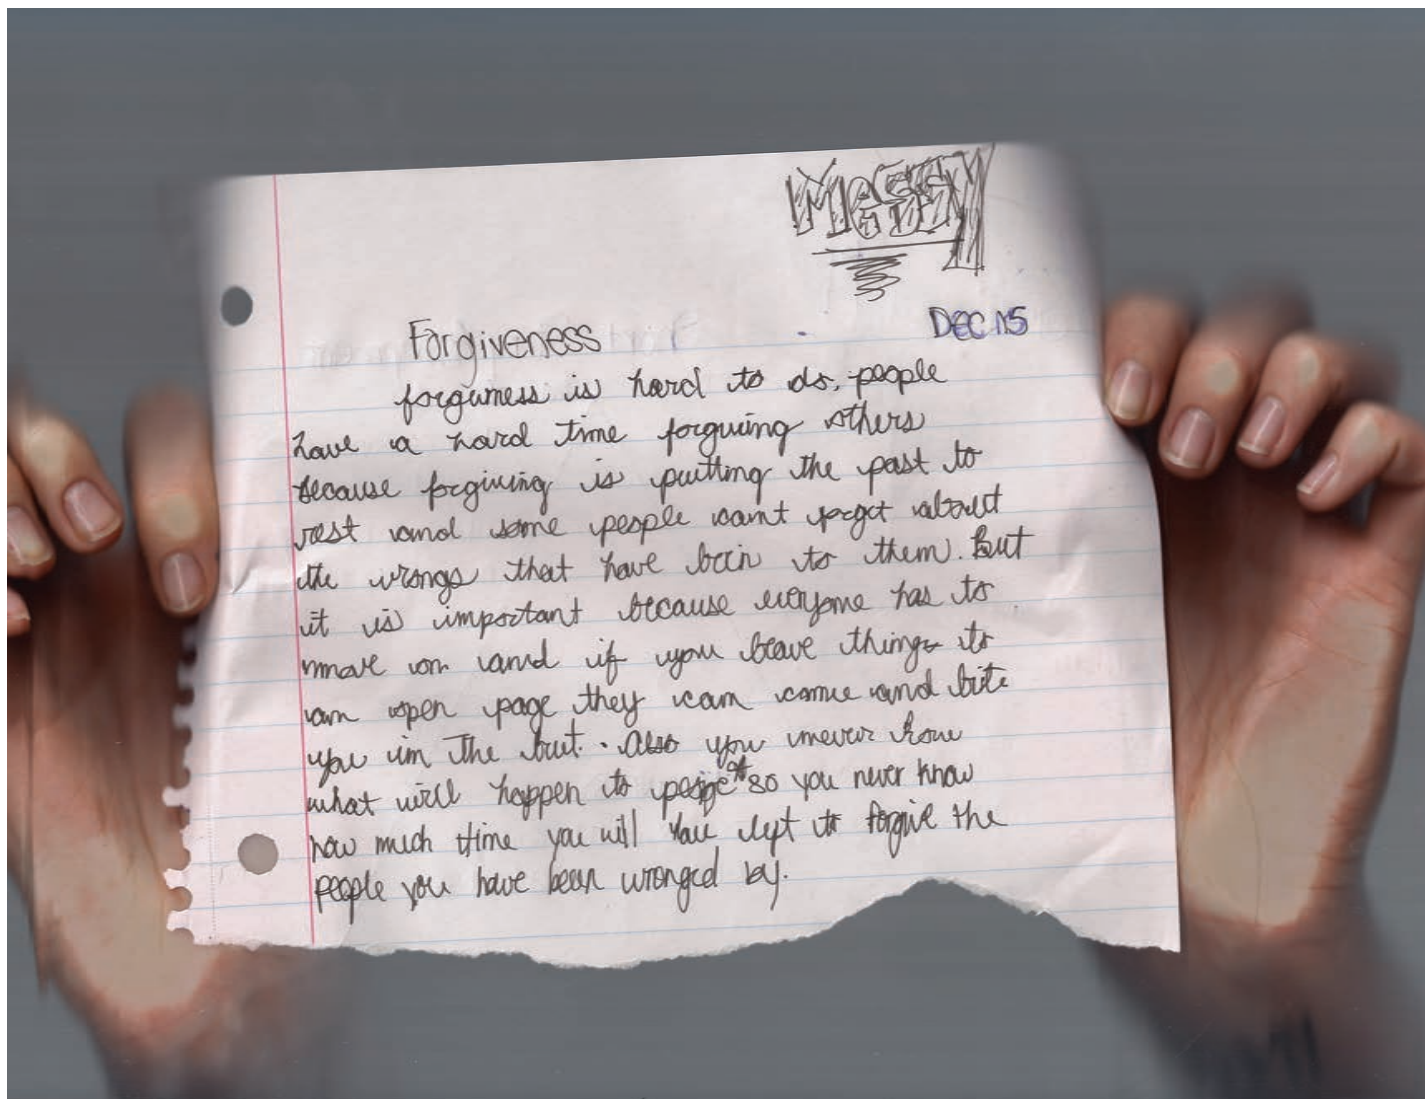 Messy
DEC 15
Forgiveness
forgivness is hard to do. people
have a hard time forguiing others
because forgiving is putting the past to
rest and some people cant forget about
the wrongs that have bein to them. But
it is important because everyone has to
move on and if you leave things to
an open page they can come and bite
you in the but. Also you never know
what will happen to so you never know
how much time you will have left to forgive the
people you have been wronged by.